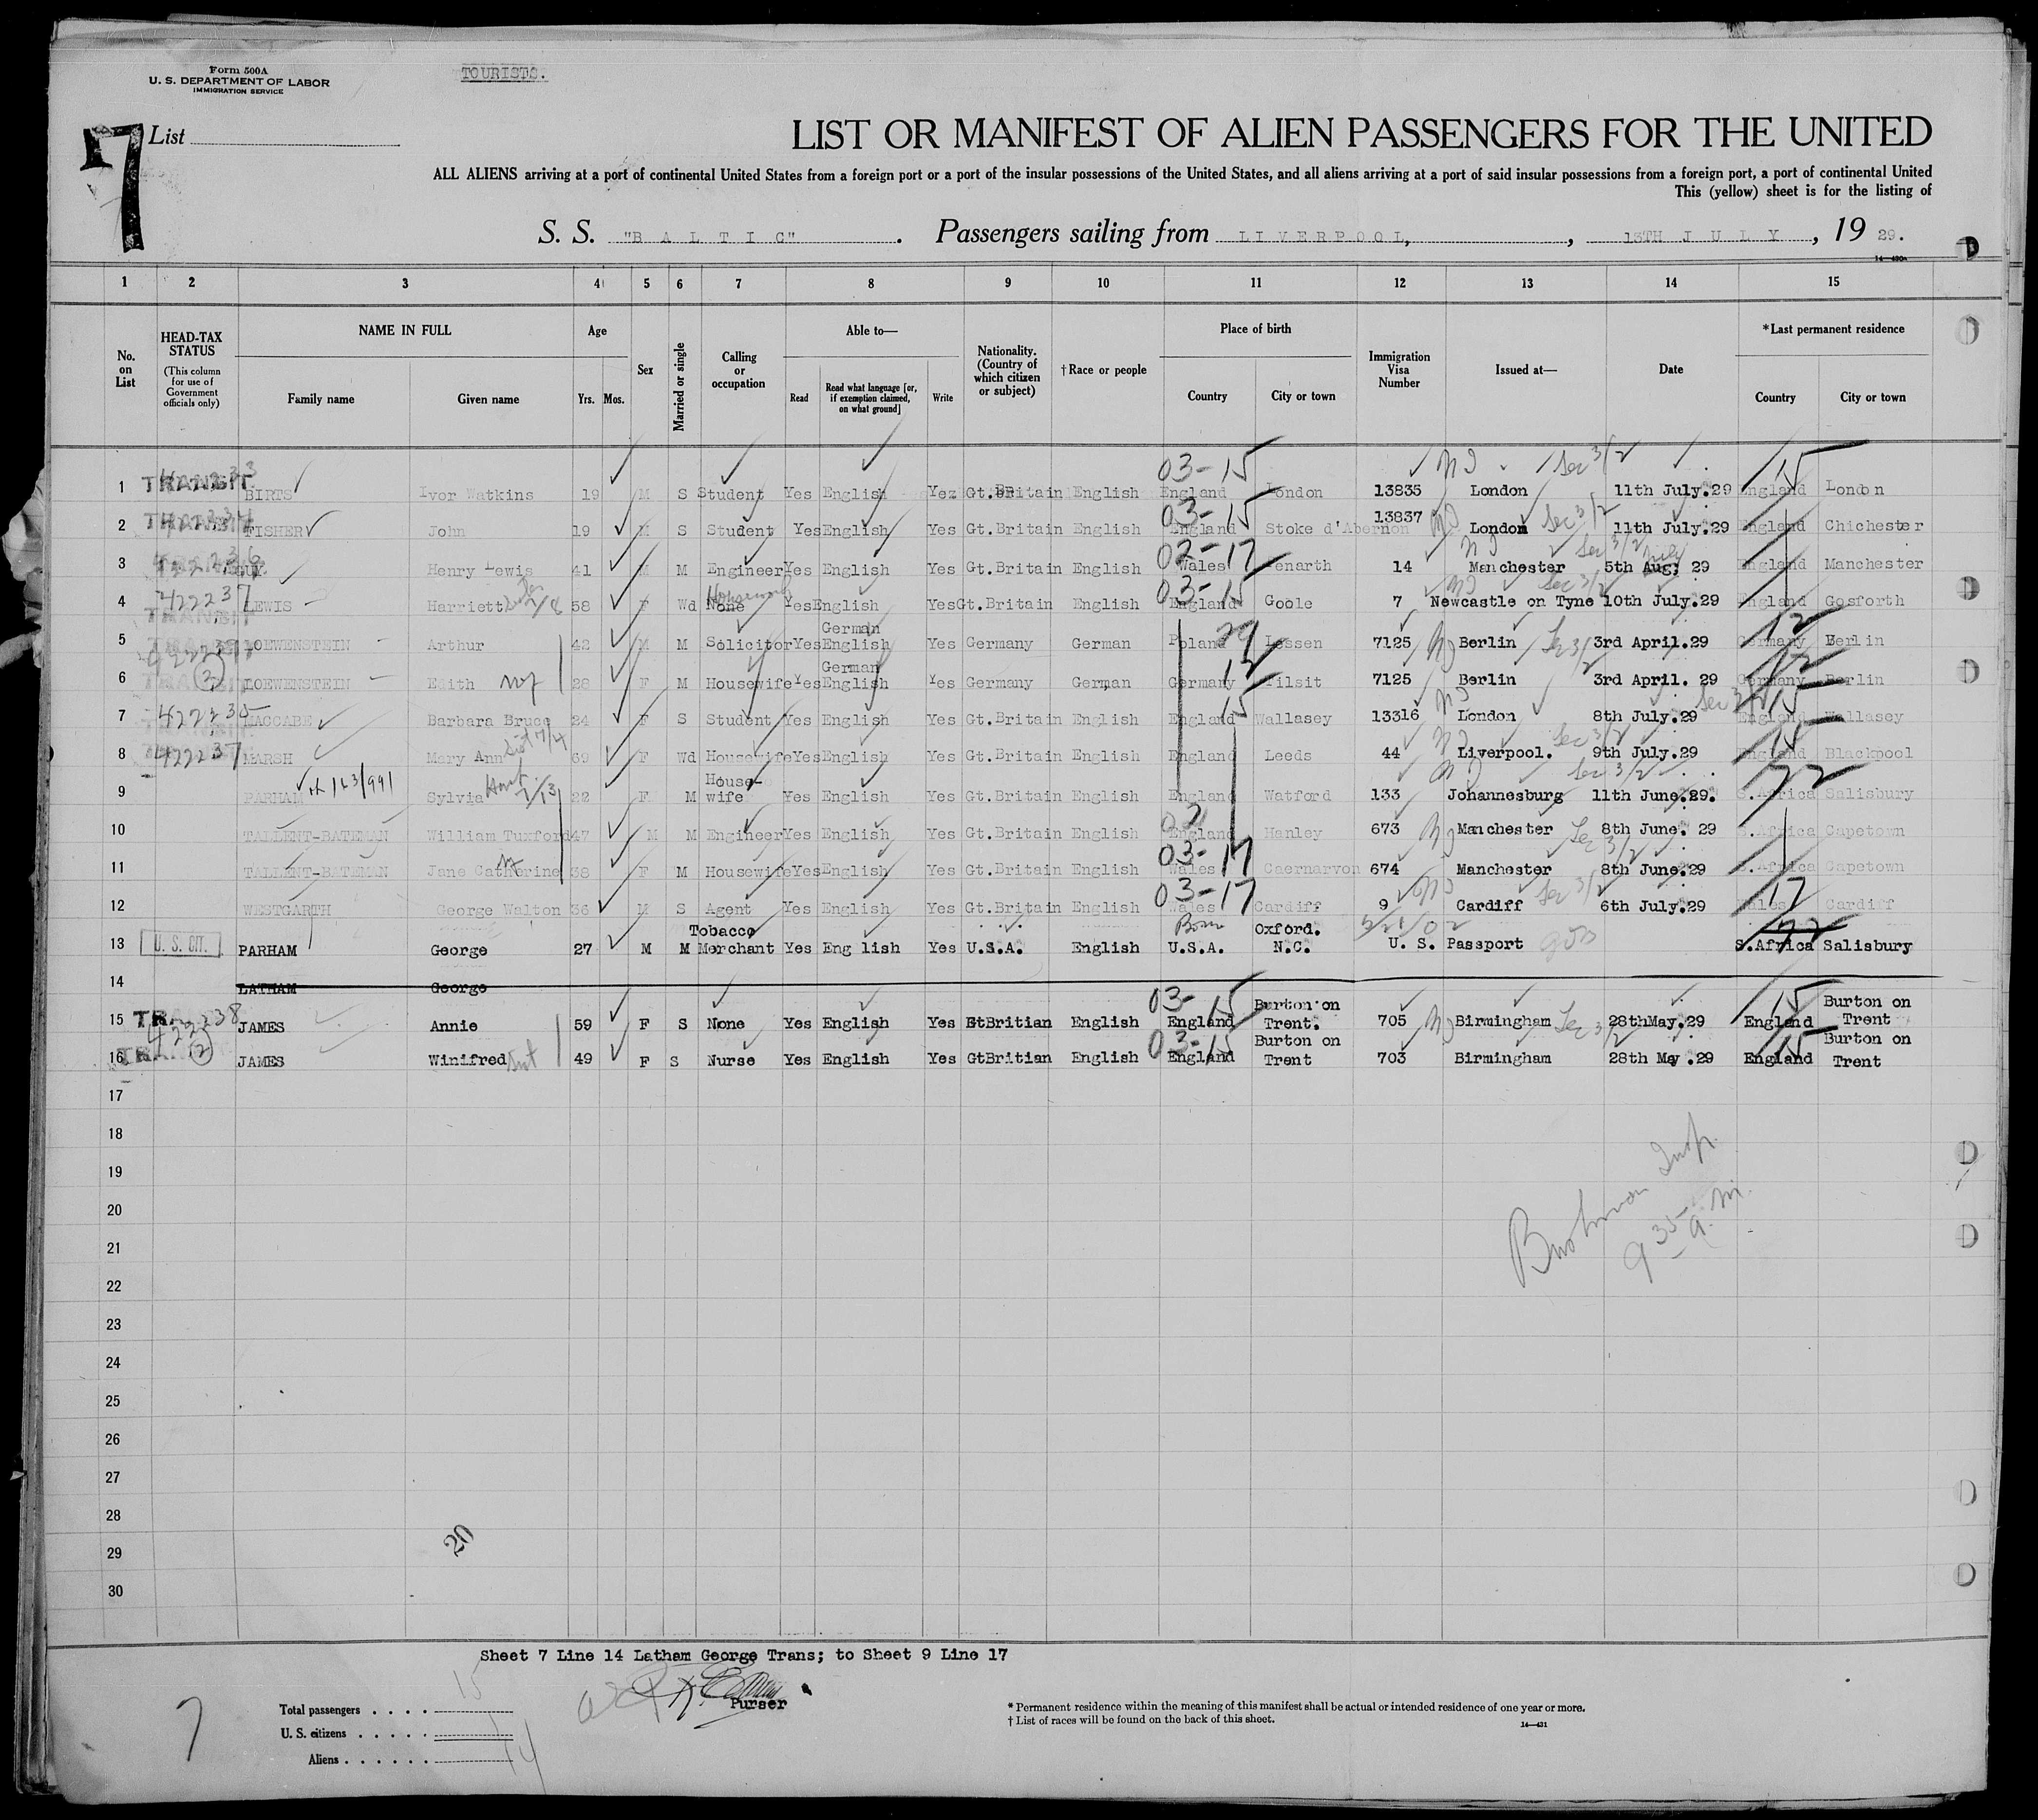 Form 500A
U. S. DEPARTMENT OF LABOR
IMMIGRATION SERVICE
TOURISTS.
7
List
LIST OR MANIFEST OF ALIEN PASSENGERS FOR THE UNITED
ALL ALIENS arriving at a port of continental United States from a foreign port or a port of the insular possessions of the United States, and all aliens arriving at a port of said insular possessions from a foreign port, a port of continental United
This (yellow) sheet is for the listing of
S. S. "BALTIC". Passengers sailing from LIVERPOOL, , 13TH JULY, 19 29.
14—430a
1 2 3 4 5 6 7 8 9 10 11 12 13 14 15
No. on List
HEAD-TAX STATUS
(This column for use of Government officials only)
NAME IN FULL
Family name Given name
Age
Yrs. Mos.
Sex
Married or single
Calling or occupation
Able to—
Read Read what language [or, if exemption claimed, on what ground] Write
Nationality. (Country of which citizen or subject)
†Race or people
Place of birth
Country City or town
Immigration Visa Number
Issued at—
Date
*Last permanent residence
Country City or town
1 TRANSIT BIRTS Ivor Watkins 19 M S Student Yes English Yez Gt.Britain English 03-15 England London 13835 London Sec 3/2 11th July.29 15 England London
2 FISHER John 19 M S Student Yes English Yes Gt.Britain English 03-15 England Stoke d'Abernon 13837 London Sec 3/2 11th July.29 England Chichester
3 422236 GUY Henry Lewis 41 M M Engineer Yes English Yes Gt.Britain English 02-17 Wales Penarth 14 Manchester Sec 3/2 5th Aug; July 29 England Manchester
4 422237 LEWIS Harriett 58 F Wd None Housework Yes English Yes Gt.Britain English 03-15 England Goole 7 Newcastle on Tyne Sec 3/2 10th July.29 England Gosforth
5 LOEWENSTEIN Arthur 42 M M Solicitor Yes German English Yes Germany German Poland 29 Lessen 7125 Berlin Sec 3/2 3rd April.29 12 Germany Berlin
6 LOEWENSTEIN Edith 28 F M Housewife Yes German English Yes Germany German Germany 12 Tilsit 7125 Berlin 3rd April. 29 12 Germany Berlin
7 422235 MACCABE Barbara Bruce 24 F S Student Yes English Yes Gt.Britain English England 15 Wallasey 13316 London 8th July.29 Sec 3/2 15 England Wallasey
8 422237 MARSH Mary Ann 69 F Wd Housewife Yes English Yes Gt.Britain English England Leeds 44 Liverpool. Sec 3/2 9th July.29 15 England Blackpool
9 PARHAM Sylvia 22 F M House-wife Yes English Yes Gt.Britain English England Watford 133 Johannesburg Sec 3/2 11th June.29. 72 S.Africa Salisbury
10 TALLENT-BATEMAN William Tuxford 47 M M Engineer Yes English Yes Gt.Britain English England Hanley 673 Manchester Sec 3/2 8th June. 29 S.Africa Capetown
11 TALLENT-BATEMAN Jane Catherine 38 F M Housewife Yes English Yes Gt.Britain English 03-17 Wales Caernarvon 674 Manchester 8th June.29 S.Africa Capetown
12 WESTGARTH George Walton 36 M S Agent Yes English Yes Gt.Britain English 03-17 Wales Cardiff 9 Cardiff Sec 3/2 6th July.29 17 Wales Cardiff
13 U. S. CIT. PARHAM George 27 M M Tobacco Merchant Yes Eng lish Yes U.S.A. English Born U.S.A. Oxford. N.C. U. S. Passport 72 S.Africa Salisbury
14 LATHAM George
15 JAMES Annie 59 F S None Yes English Yes GtBritian English 03-15 England Burton on Trent. 705 Birmingham Sec 3/2 28thMay.29 15 England Burton on Trent
16 JAMES Winifred 49 F S Nurse Yes English Yes GtBritian English 03-15 England Burton on Trent 703 Birmingham 28th May .29 15 England Burton on Trent
17
18
19
20
21
22
23
24
25
26
27
28
29
30
9 35 a.m.
20
Sheet 7 Line 14 Latham George Trans; to Sheet 9 Line 17
Purser
7
Total passengers 15
U. S. citizens 1
Aliens 14
* Permanent residence within the meaning of this manifest shall be actual or intended residence of one year or more.
† List of races will be found on the back of this sheet.
14—431